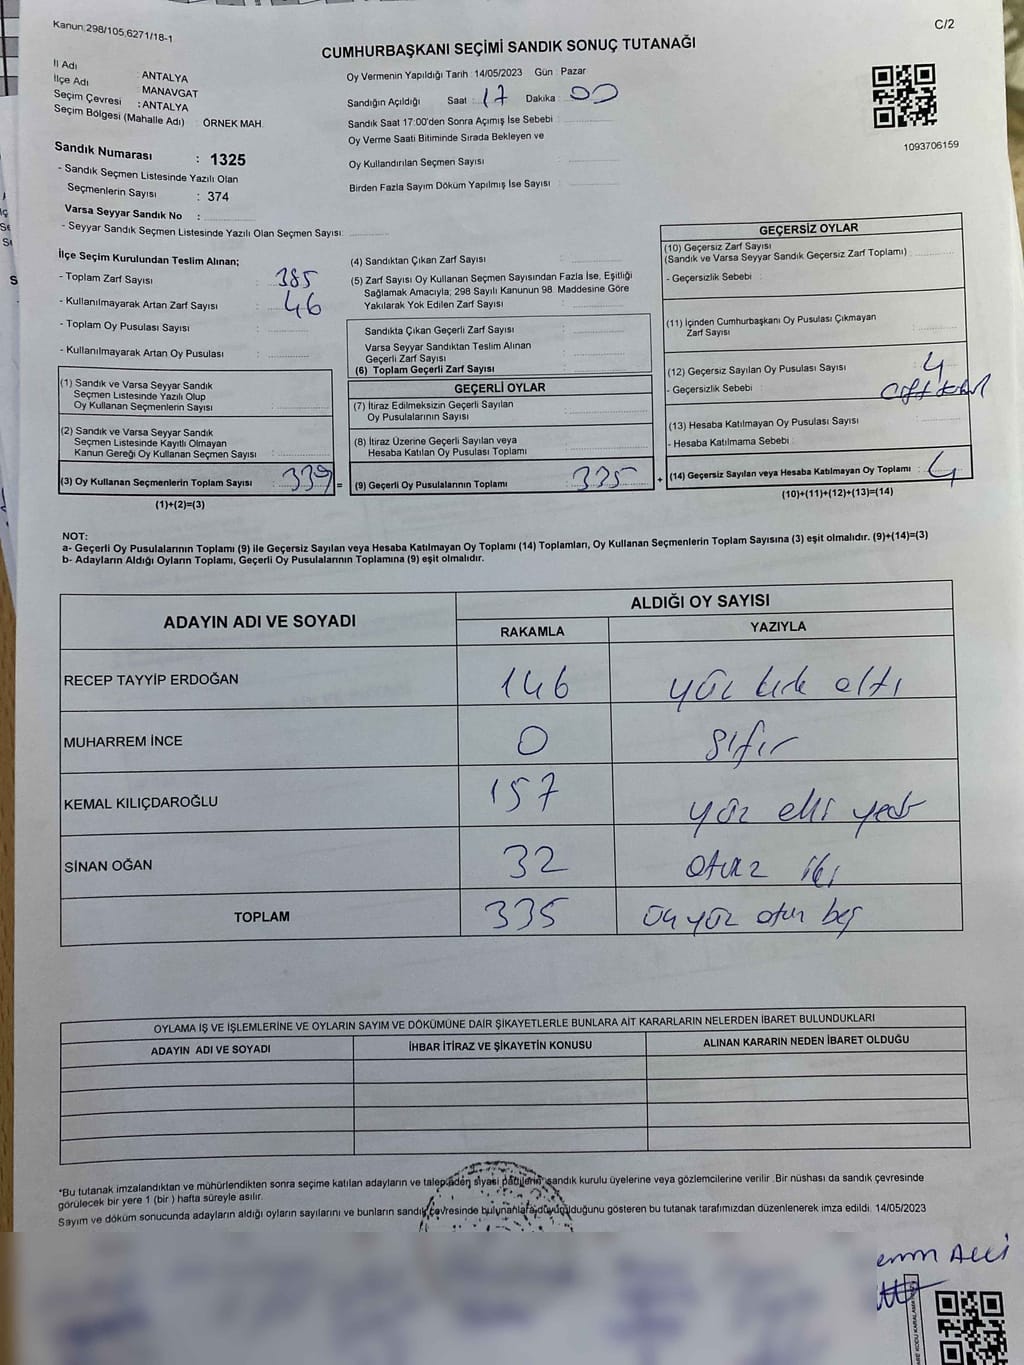 Kanun:298/105,6271/18-1
C/2
CUMHURBAŞKANI SEÇİMİ SANDIK SONUÇ TUTANAĞI
İl Adı : ANTALYA
İlçe Adı : MANAVGAT
Seçim Çevresi : ANTALYA
Seçim Bölgesi (Mahalle Adı) : ÖRNEK MAH.
Oy Vermenin Yapıldığı Tarih : 14/05/2023 Gün : Pazar
Sandığın Açıldığı Saat : 17 Dakika : 00
Sandık Saat 17:00'den Sonra Açımış İse Sebebi :
Oy Verme Saati Bitiminde Sırada Bekleyen ve
Oy Kullandırılan Seçmen Sayısı :
Birden Fazla Sayım Döküm Yapılmış İse Sayısı :
1093706159
Sandık Numarası : 1325
- Sandık Seçmen Listesinde Yazılı Olan
Seçmenlerin Sayısı : 374
Varsa Seyyar Sandık No :
- Seyyar Sandık Seçmen Listesinde Yazılı Olan Seçmen Sayısı:
İlçe Seçim Kurulundan Teslim Alınan;
- Toplam Zarf Sayısı : 385
- Kullanılmayarak Artan Zarf Sayısı : 46
- Toplam Oy Pusulası Sayısı :
- Kullanılmayarak Artan Oy Pusulası :
(1) Sandık ve Varsa Seyyar Sandık
Seçmen Listesinde Yazılı Olup
Oy Kullanan Seçmenlerin Sayısı :
(2) Sandık ve Varsa Seyyar Sandık
Seçmen Listesinde Kayıtlı Olmayan
Kanun Gereği Oy Kullanan Seçmen Sayısı :
(3) Oy Kullanan Seçmenlerin Toplam Sayısı : 339 =
(1)+(2)=(3)
(4) Sandıktan Çıkan Zarf Sayısı :
(5) Zarf Sayısı Oy Kullanan Seçmen Sayısından Fazla İse, Eşitliği
Sağlamak Amacıyla; 298 Sayılı Kanunun 98. Maddesine Göre
Yakılarak Yok Edilen Zarf Sayısı :
Sandıkta Çıkan Geçerli Zarf Sayısı :
Varsa Seyyar Sandıktan Teslim Alınan
Geçerli Zarf Sayısı :
(6) Toplam Geçerli Zarf Sayısı :
GEÇERLİ OYLAR
(7) İtiraz Edilmeksizin Geçerli Sayılan
Oy Pusulalarının Sayısı :
(8) İtiraz Üzerine Geçerli Sayılan veya
Hesaba Katılan Oy Pusulası Toplamı :
(9) Geçerli Oy Pusulalarının Toplamı : 335 +
GEÇERSİZ OYLAR
(10) Geçersiz Zarf Sayısı
(Sandık ve Varsa Seyyar Sandık Geçersiz Zarf Toplamı) :
- Geçersizlik Sebebi :
(11) İçinden Cumhurbaşkanı Oy Pusulası Çıkmayan
Zarf Sayısı :
(12) Geçersiz Sayılan Oy Pusulası Sayısı : 4
- Geçersizlik Sebebi :
(13) Hesaba Katılmayan Oy Pusulası Sayısı :
- Hesaba Katılmama Sebebi :
(14) Geçersiz Sayılan veya Hesaba Katılmayan Oy Toplamı : 4
(10)+(11)+(12)+(13)=(14)
NOT:
a- Geçerli Oy Pusulalarının Toplamı (9) ile Geçersiz Sayılan veya Hesaba Katılmayan Oy Toplamı (14) Toplamları, Oy Kullanan Seçmenlerin Toplam Sayısına (3) eşit olmalıdır. (9)+(14)=(3)
b- Adayların Aldığı Oyların Toplamı, Geçerli Oy Pusulalarının Toplamına (9) eşit olmalıdır.
ADAYIN ADI VE SOYADI
ALDIĞI OY SAYISI
RAKAMLA YAZIYLA
RECEP TAYYİP ERDOĞAN 146 yüz kırk altı
MUHARREM İNCE 0 sıfır
KEMAL KILIÇDAROĞLU 157 yüz elli yedi
SİNAN OĞAN 32 otuz iki
TOPLAM 335 üç yüz otuz beş
OYLAMA İŞ VE İŞLEMLERİNE VE OYLARIN SAYIM VE DÖKÜMÜNE DAİR ŞİKAYETLERLE BUNLARA AİT KARARLARIN NELERDEN İBARET BULUNDUKLARI
ADAYIN ADI VE SOYADI İHBAR İTİRAZ VE ŞİKAYETİN KONUSU ALINAN KARARIN NEDEN İBARET OLDUĞU
*Bu tutanak imzalandıktan ve mühürlendikten sonra seçime katılan adayların ve talep eden siyasi partilerin, sandık kurulu üyelerine veya gözlemcilerine verilir .Bir nüshası da sandık çevresinde
görülecek bir yere 1 (bir ) hafta süreyle asılır.
Sayım ve döküm sonucunda adayların aldığı oyların sayılarını ve bunların sandık çevresinde bulunanlara duyurulduğunu gösteren bu tutanak tarafımızdan düzenlenerek imza edildi. 14/05/2023